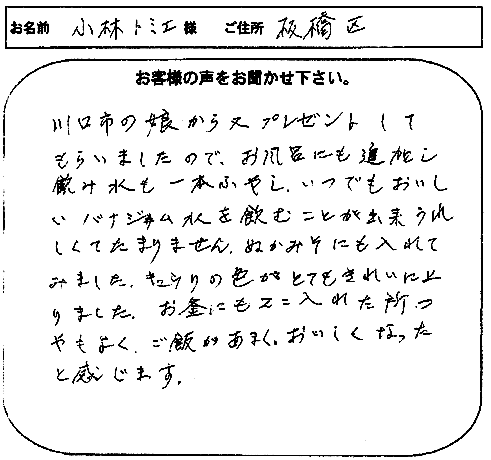 お名前 小林トミエ 様 ご住所 板橋区
お客様の声をお聞かせ下さい。
川口市の娘から又プレゼントして
もらいましたので、お風呂にも追加し
飲み水も一本ふやし、いつでもおいし
い バナジューム水を飲むことが出来うれ
しくてたまりません。ぬかみそにも入れて
みました。キュウリの色がとてもきれいに上
りました。お釜にも2コ入れた所つ
やもよく、ご飯があまく。おいしくなった
と感じます。